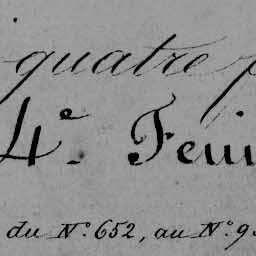 quatre p
4e. Feui
du N°. 652, au N°. 9